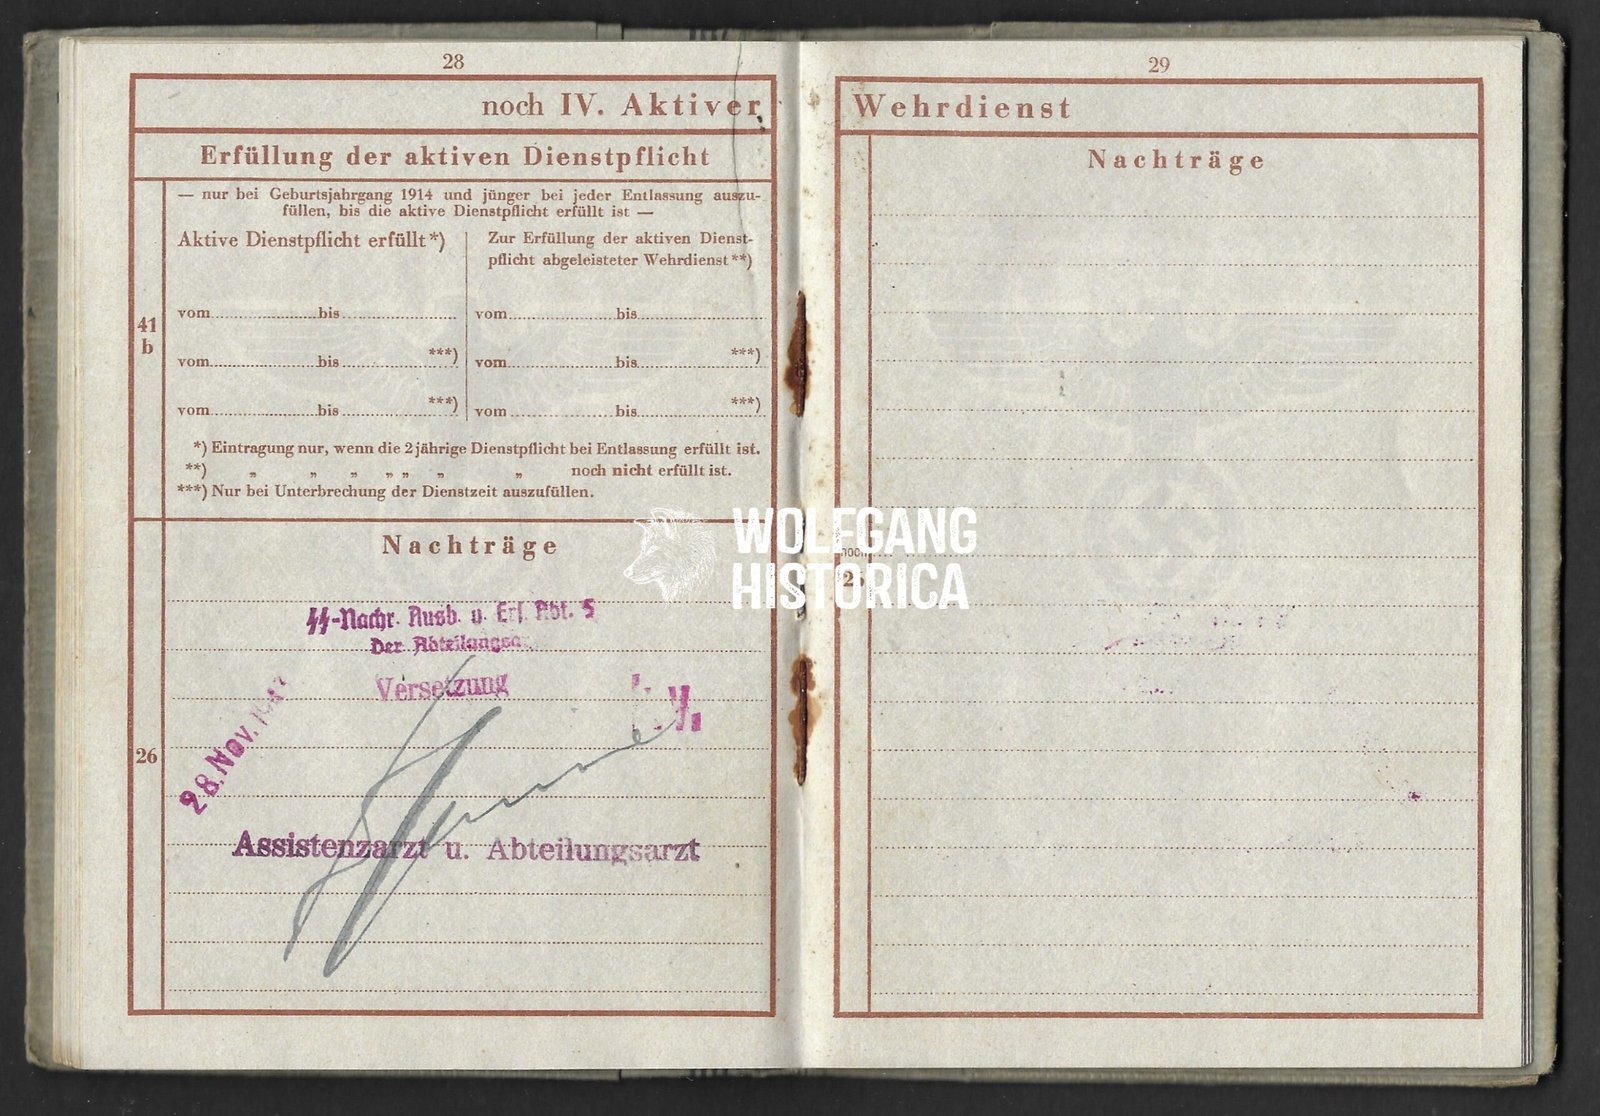 28
noch IV. Aktiver
Erfüllung der aktiven Dienstpflicht
— nur bei Geburtsjahrgang 1914 und jünger bei jeder Entlassung auszu-
füllen, bis die aktive Dienstpflicht erfüllt ist —
Aktive Dienstpflicht erfüllt*)
Zur Erfüllung der aktiven Dienst-
pflicht abgeleisteter Wehrdienst**)
41
b
vom bis
vom bis
vom bis ***)
vom bis ***)
vom bis ***)
vom bis ***)
*) Eintragung nur, wenn die 2jährige Dienstpflicht bei Entlassung erfüllt ist.
**) „ „ „ „ „ „ „ noch nicht erfüllt ist.
***) Nur bei Unterbrechung der Dienstzeit auszufüllen.
Nachträge
26
SS-Nachr. Ausb. u. Ers. Abt. 5
Der
Versetzung
28. Nov.
Assistenzarzt u. Abteilungsarzt
29
Wehrdienst
Nachträge
noch
WOLFGANG
HISTORICA